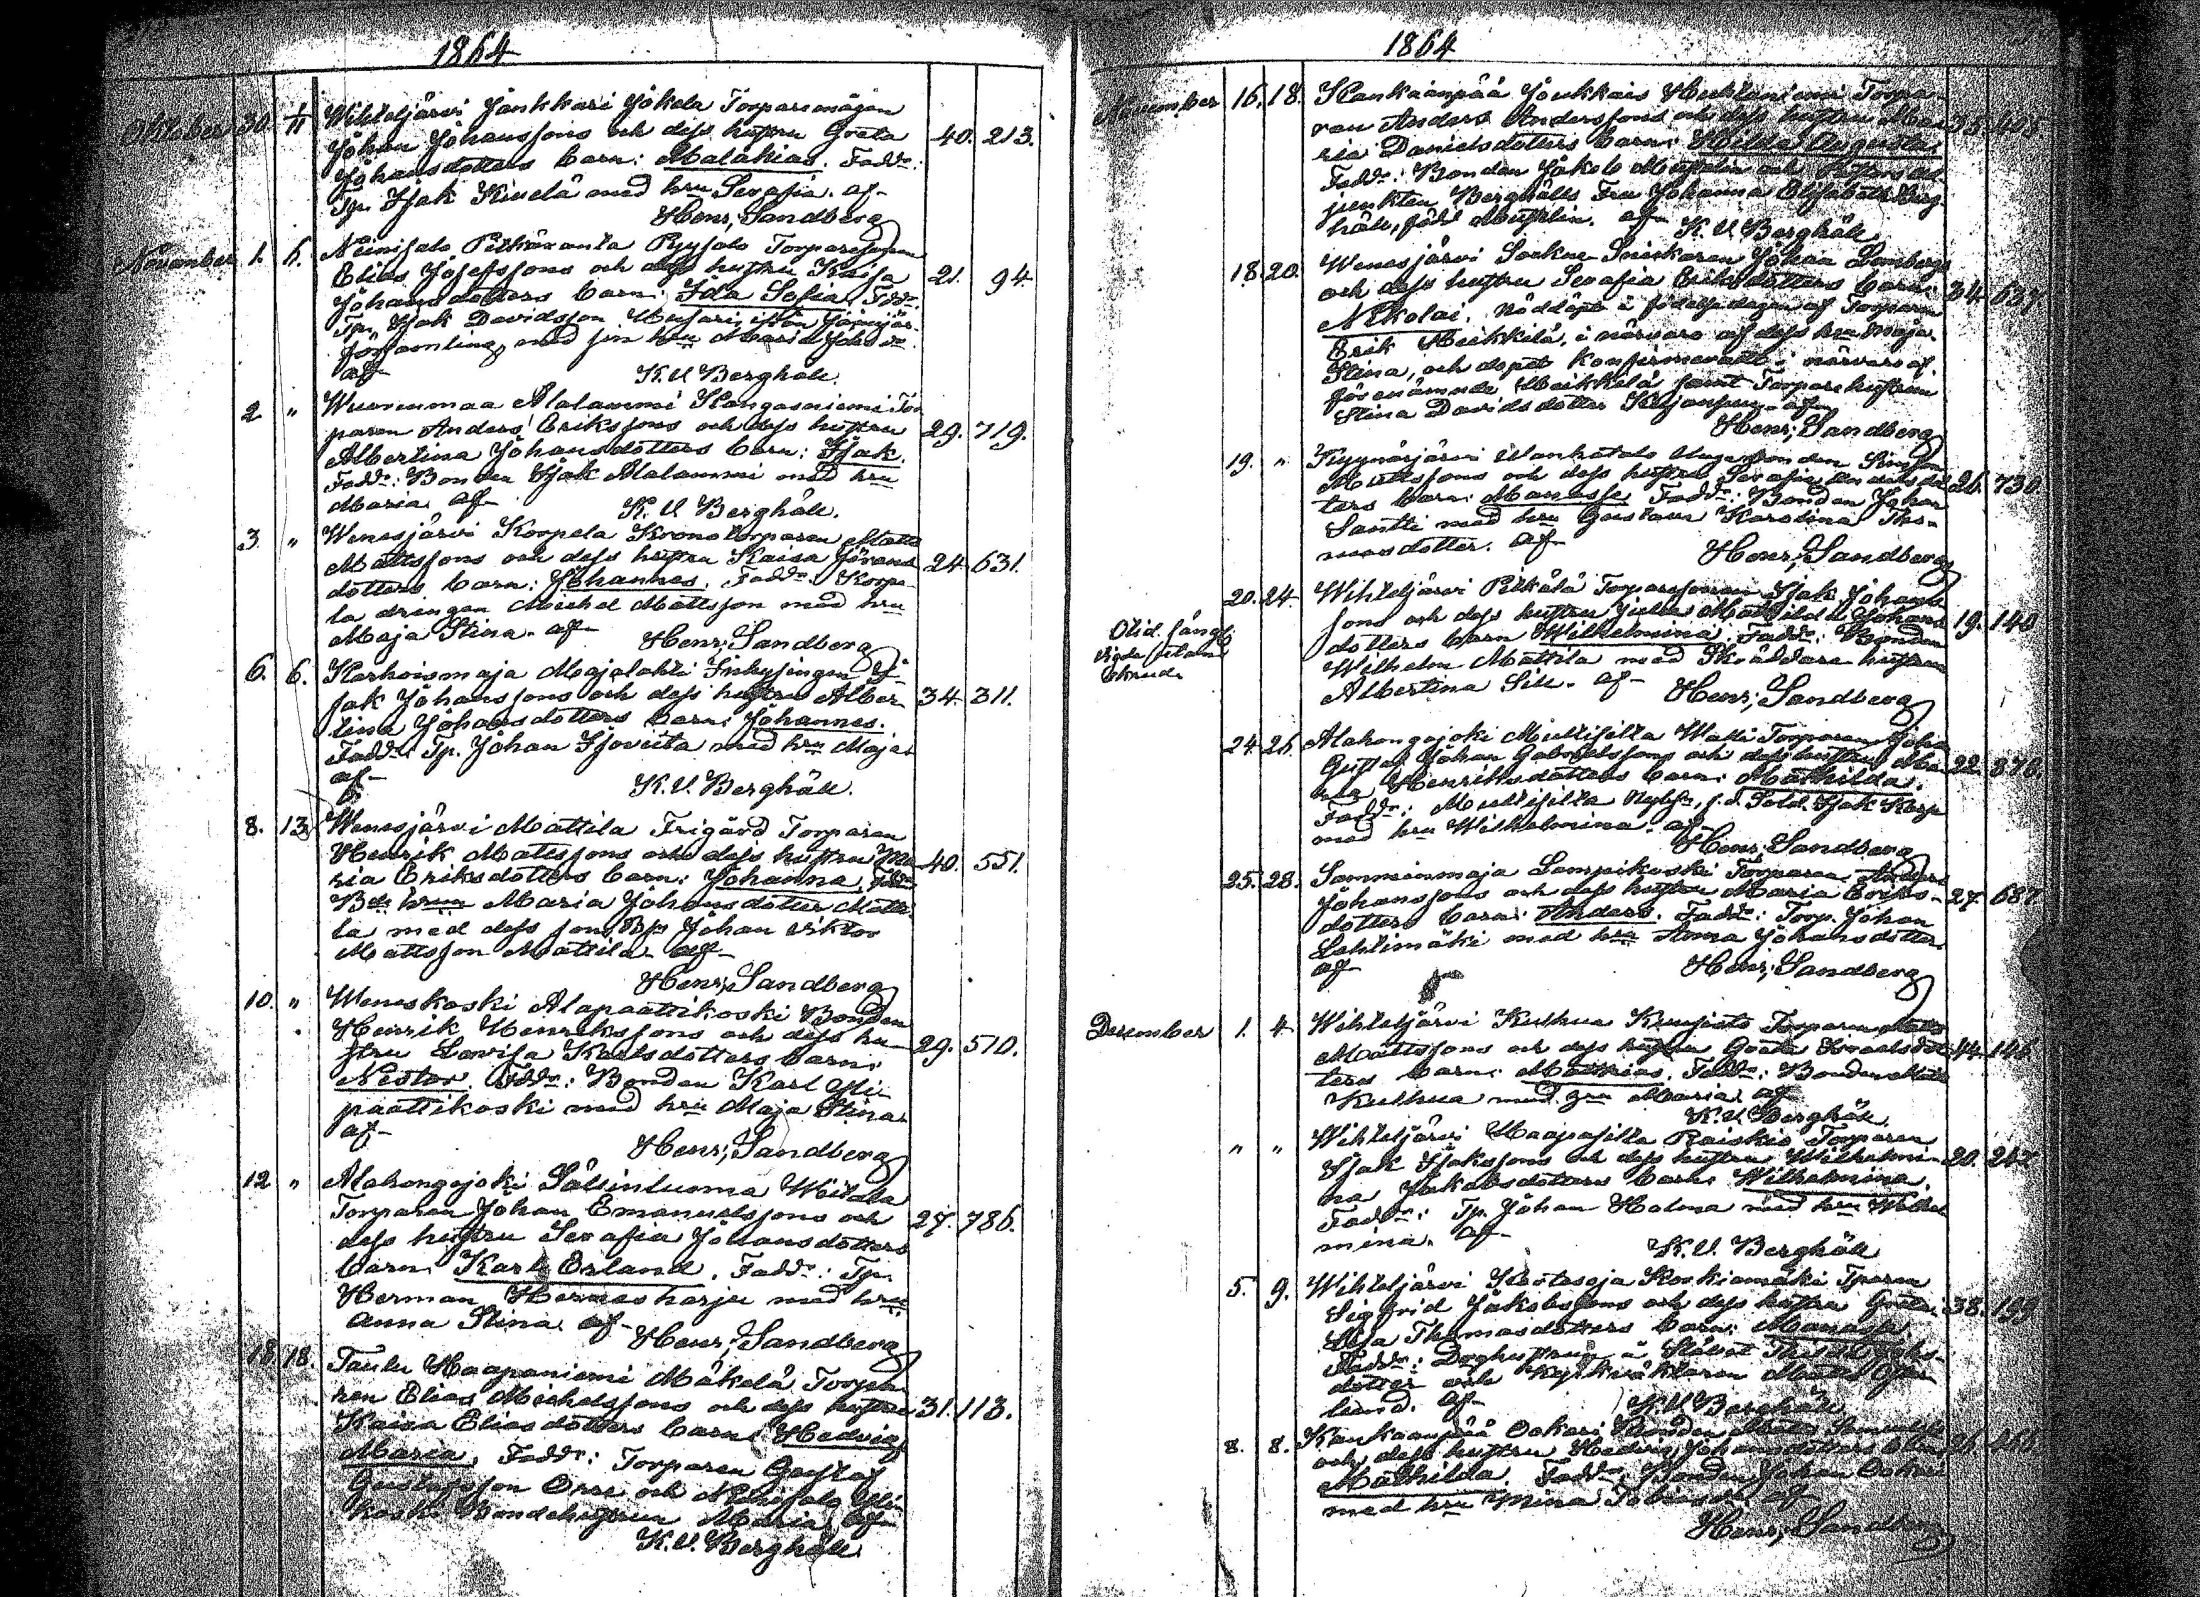 1864
Oktober 30. 1/11 Wihteljärvi Jankkari Jokela Torparemågen
Johan Johanssons och dess hustru Greta 40. 213.
Johansdotters barn: Malakias. Fadd:
Tp. Isak Kivelä med hru Serafia. af
Henr; Sandberg
November 1. 6. Niinisalo Pitkäranta Pyysalo Torparesonen
Elias Josefssons och dess hustru Kaisa 21. 94.
Johansdotters barn: Ida Sofia. Fadd:
Tp. Isak Davidsson Husari, ifrån Jämijär.
församling, med sin hru Maria Johsdr
af K. V. Berghäll.
2 " Wuorenmaa Alalammi Kangasniemi Tor
paren Anders Erikssons och dess hustru 29. 719.
Albertina Johansdotters barn: Isak.
Fadd: Bonden Isak Alalammi med hru
Maria. af K. V. Berghäll.
3 " Wenesjärvi Korpela Kronotorparen Matts
Mattssons och dess hustru Kaisa Jörans 24. 631.
dotters barn: Johannes. Fadd: Korpe-
la drengen Michel Mattsson med hru
Maja Stina. af Henr; Sandberg
6. 6. Karhoismaja Majalahti Inhysingen I-
sak Johanssons och dess hustru Alber- 34. 311.
tina Johansdotters barn: Johannes.
Fadd: Tp. Johan Isoviita med hru Maja
af
K. V. Berghäll.
8. 13. Wenesjärvi Mattila Frigård Torparen
Henrik Mattssons och dess hustru Ma- 40. 551.
ria Eriksdotters barn: Johanna. Fadd:
Bde hrun Maria Johansdotter Matti-
la med dess son Bs Johan Viktor
Mattsson Mattila. af
Henr; Sandberg
10. " Weneskoski Alapaattikoski Bonden
Henrik Henrikssons och dess hu- 29. 510.
stru Lovisa Karlsdotters barn:
Nestor. Fadd: Bonden Karl Yli-
paattikoski med hru Maja Stina.
af
Henr; Sandberg
12 " Alahongojoki Sällinluoma Wiitala
Torparen Johan Emanuelssons och 27. 786.
dess hustru Serafia Johansdotters
barn: Karl Erland. Fadd: Tp.
Herman Hermasharju med hru
Anna Stina. af Henr; Sandberg
18. 18. Taulu Haapaniemi Mäkelä Torpa-
ren Elias Michelssons och dess hustru 31. 113.
Kaisa Eliasdotters barn: Hedvig
Maria. Fadd: Torparen Gustaf
Gustafsson Orre och Niinisalo Yli-
koski Bondehustrun Maria. af
K. V. Berghäll
1864
November 16. 18. Kankaanpää Joukkais Huhtaniemi Torpa-
ren Anders Anderssons och dess hustru Ma- 35.
ria Danielsdotters barn: Hilda Augusta.
Fadd: Bonden Jakob och
Berghälls Fru Johanna Elisabeth Berg-
häll, född. af K. V. Berghäll
18. 20. Wenesjärvi Sockne Snickaren Johan Lombergs
och dess hustru Serafia Eriksdotters barn: 34. 637.
Nikolai, nöddöpt i födelsedagen af Torparen
Erik Heikkilä, i närvaro af dess hru Maja
Stina, och dopet konfirmeradt i närvaro af
förenämnde Heikkilä samt Torparehustrun
Stina Davidsdotter af
Henr; Sandberg
19. " Kyynärjärvi Wanhatalo Unga Bonden Simson
Mattssons och dess hustru Serafia 26. 730.
ters barn: Manasse. Fadd: Bonden Johan
Santti med hru Gustava Karolina Tho-
masdotter. af
Henr; Sandberg
Olid. långt
vigde utan
brud.
20. 24. Wihteljärvi Pitkälä Torparesonen Isak Johans-
sons och dess hustru Julia Mathilda Johans 19. 140
dotters barn Wilhelmina. Fadd: Bonden
Wilhelm Mattila med Skräddare hustrun
Albertina Sill. af Henr; Sandberg
24. 26. Alahongojoki Multisilta Walli Torparen Johan
Gustaf Johan Gabrielssons och dess hustru Ma- 22. 876.
ria Henriksdotters barn: Mathilda.
Fadd: Multisilta, f.d. Sold. Isak Karp
med hru Wilhelmina. af
Henr; Sandberg
25. 28. Samminmaja Lampikoski Torparen Anders
Johanssons och dess hustru Maria Eriks- 27. 687.
dotters barn: Anders. Fadd: Torp. Johan
Lehtimäki med hru Anna Johansdotter.
af Henr; Sandberg
December 1. 4. Wihteljärvi Kulhua Torparen Matts
Mattssons och dess hustru Greta 44. 146
ters barn: Mathias. Fadd: Bonden Matts
Kulhua med hru Maria. af
K. V. Berghäll.
" " Wihteljärvi Haapasilta Raiskio Torparen
Isak Isakssons och dess hustru Wilhelmi- 20. 242
na Jakobsdotters barn: Wilhelmina.
Fadd: Tp. Johan Holma med hru Wilhel
mina. af
K. V. Berghäll
5. 9. Wihteljärvi Koskiamäki Tparen
Sigfrid Jakobssons och dess hustru Greta 38. 199
Lisa Thomasdotters barn: Manasse.
Fadd:
dotter och Kyrkväktaren Matts
lund. af K. V. Berghäll
8. 8. Kankaanpää Ockari Bonden Matts
och dess hustru Hedvig Johansdotters barn 26.
Mathilda. Fadd: Bonden Johan Ockari
med hru Mina Tobiasdr. af
Henr; Sandberg